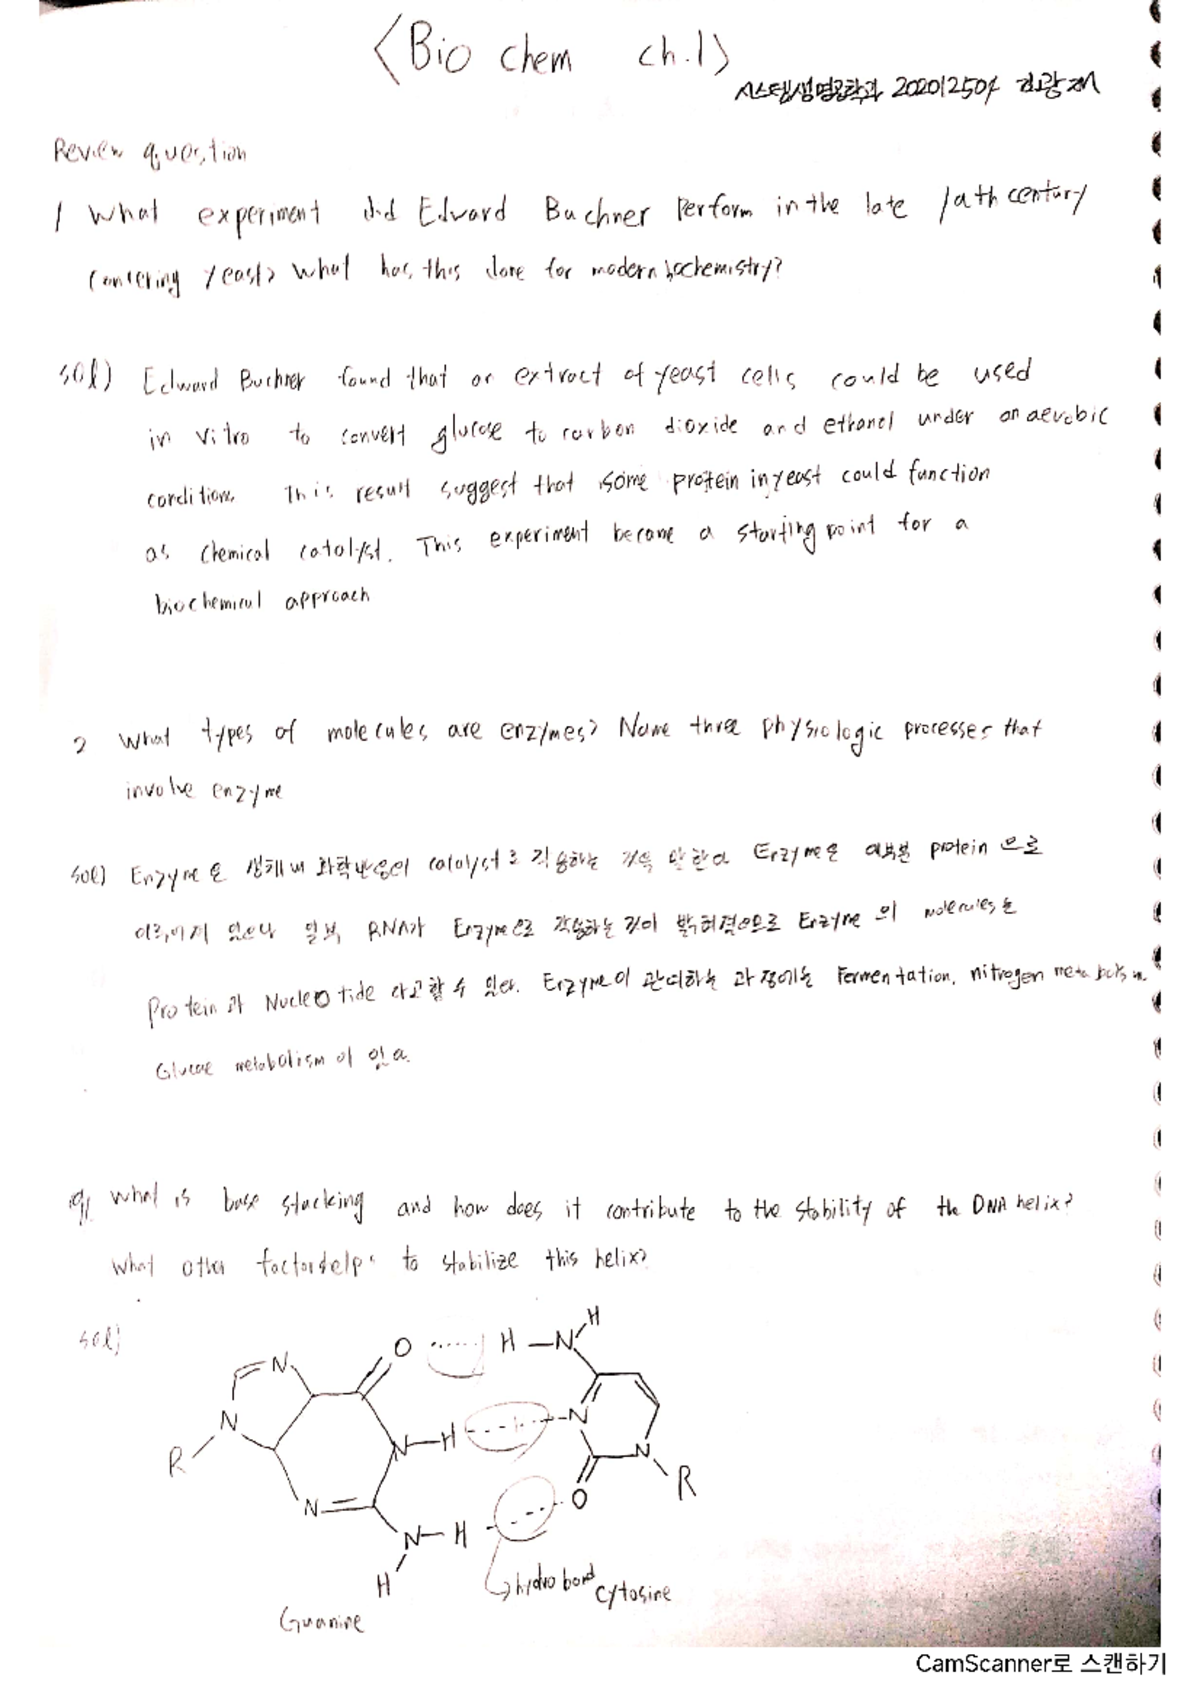 <Bio chem ch.1>
시스템생명공학과 202012504
Review question
1 What experiment did Edward Buchner Perform in the late 19th century
concering yeast? What has this done for modern biochemistry?
sol) Edward Buchner found that an extract of yeast cells could be used
in vitro to convert glucose to carbon dioxide and ethanol under anaerobic
conditions. This result suggest that some protein in yeast could function
as chemical catalyst. This experiment became a starting point for a
biochemical approach
2 What types of molecules are enzymes? Name three physiologic processes that
involve enzyme
sol) Enzyme은 생체내 화학반응에 catalyst로 작용하는 것을 말한다 Enzyme은 대부분 protein으로
이루어져 있으나 일부 RNA가 Enzyme으로 작용하는 것이 밝혀졌으므로 Enzyme의 molecules는
Protein과 Nucleotide 라고 할 수 있다. Enzyme이 관여하는 과정에는 Fermentation, nitrogen metabolism,
Glucose metabolism이 있다.
9, What is base stacking and how does it contribute to the stability of the DNA helix?
What other factors help to stabilize this helix?
sol)
O H N H
N
N H N
N R
R N
N O
N H
H
hydro bond
Cytosine
Guanine
CamScanner로 스캔하기